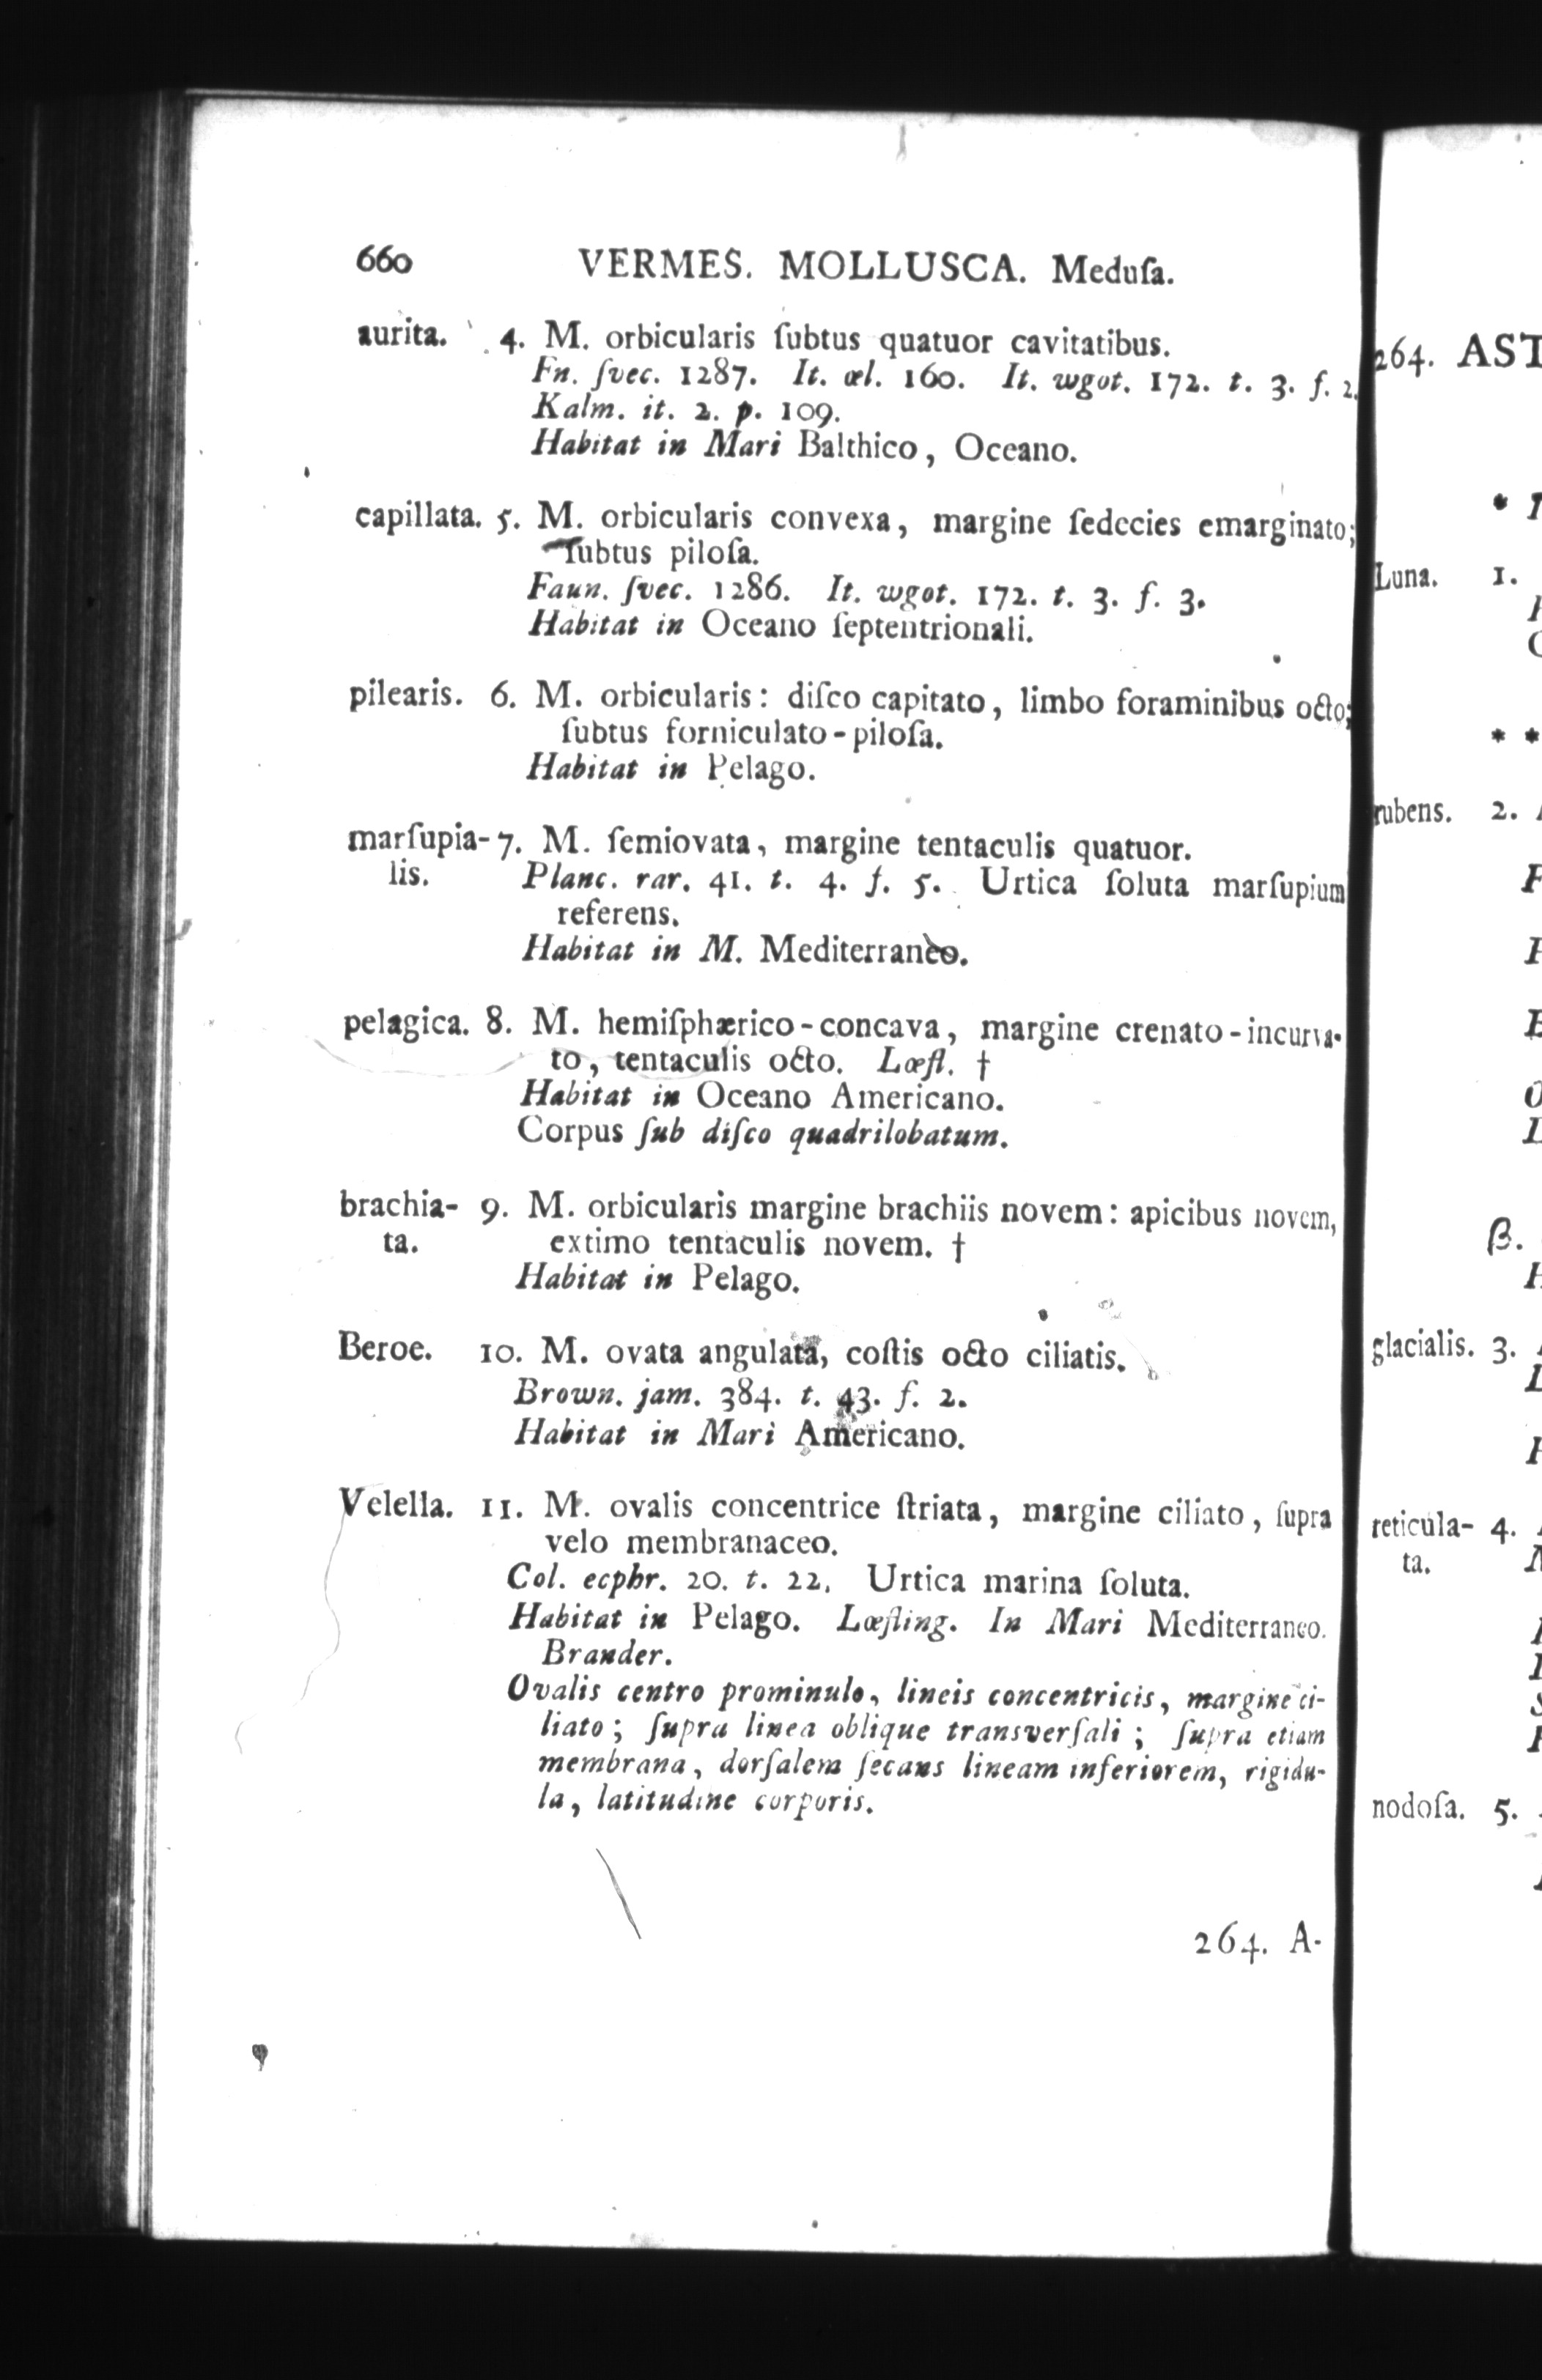 660 VERMES. MOLLUSCA. Meduſa.
aurita. 4. M. orbicularis ſubtus quatuor cavitatibus.
Fn. ſvec. 1287. It. œl. 160. It. wgot. 172. t. 3. f. 2.
Kalm. it. 2. p. 109.
Habitat in Mari Balthico, Oceano.
capillata. 5. M. orbicularis convexa, margine ſedecies emarginato;
ſubtus piloſa.
Faun. ſvec. 1286. It. wgot. 172. t. 3. f. 3.
Habitat in Oceano ſeptentrionali.
pilearis. 6. M. orbicularis: diſco capitato, limbo foraminibus octo;
ſubtus forniculato-piloſa.
Habitat in Pelago.
marſupia- 7. M. ſemiovata, margine tentaculis quatuor.
lis. Planc. rar. 41. t. 4. f. 5. Urtica ſoluta marſupium
referens.
Habitat in M. Mediterraneo.
pelagica. 8. M. hemiſphærico-concava, margine crenato-incurva-
to, tentaculis octo. Lœfl. †
Habitat in Oceano Americano.
Corpus ſub diſco quadrilobatum.
brachia- 9. M. orbicularis margine brachiis novem: apicibus novem,
ta. extimo tentaculis novem. †
Habitat in Pelago.
Beroe. 10. M. ovata angulata, coſtis octo ciliatis.
Brown. jam. 384. t. 43. f. 2.
Habitat in Mari Americano.
Velella. 11. M. ovalis concentrice ſtriata, margine ciliato, ſupra
velo membranaceo.
Col. ecphr. 20. t. 22. Urtica marina ſoluta.
Habitat in Pelago. Lœfling. In Mari Mediterraneo.
Brander.
Ovalis centro prominulo, lineis concentricis, margine ci-
liato; ſupra linea oblique transverſali; ſupra etiam
membrana, dorſalem ſecans lineam inferiorem, rigidu-
la, latitudine corporis.
264. A-
264. AST
*
Luna. 1.
* *
rubens. 2.
β.
glacialis. 3.
reticula- 4.
ta.
nodoſa. 5.